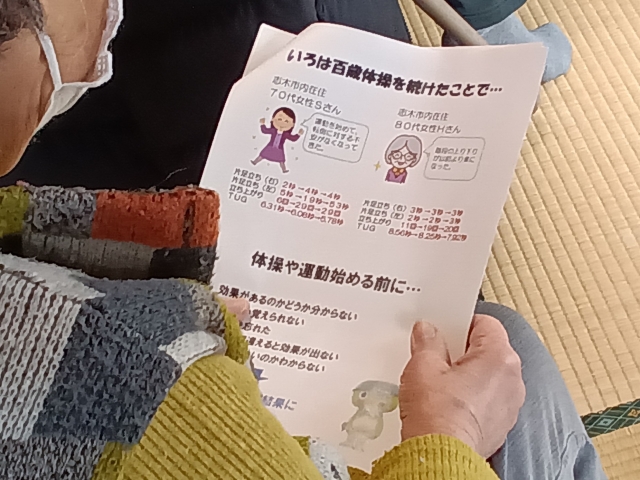 いろは百歳体操を続けたことで…
志木市内在住
70代女性Sさん
運動を始めて、
転倒に対する不
安がなくなって
きた。
片足立ち（右）2秒→4秒→4秒
片足立ち（左）5秒→19秒→53秒
立ち上がり 6回→20回→29回
TUG 6.31秒→6.06秒→5.78秒
志木市内在住
80代女性Hさん
階段の上り下り
が以前より楽に
なった。
片足立ち（右）3秒→3秒→3秒
片足立ち（左）2秒→2秒→3秒
立ち上がり 11回→19回→20回
TUG 8.56秒→8.25秒→7.92秒
体操や運動始める前に…
効果があるのかどうか分からない
覚えられない
忘れた
違えると効果が出ない
いのかわからない
結果に